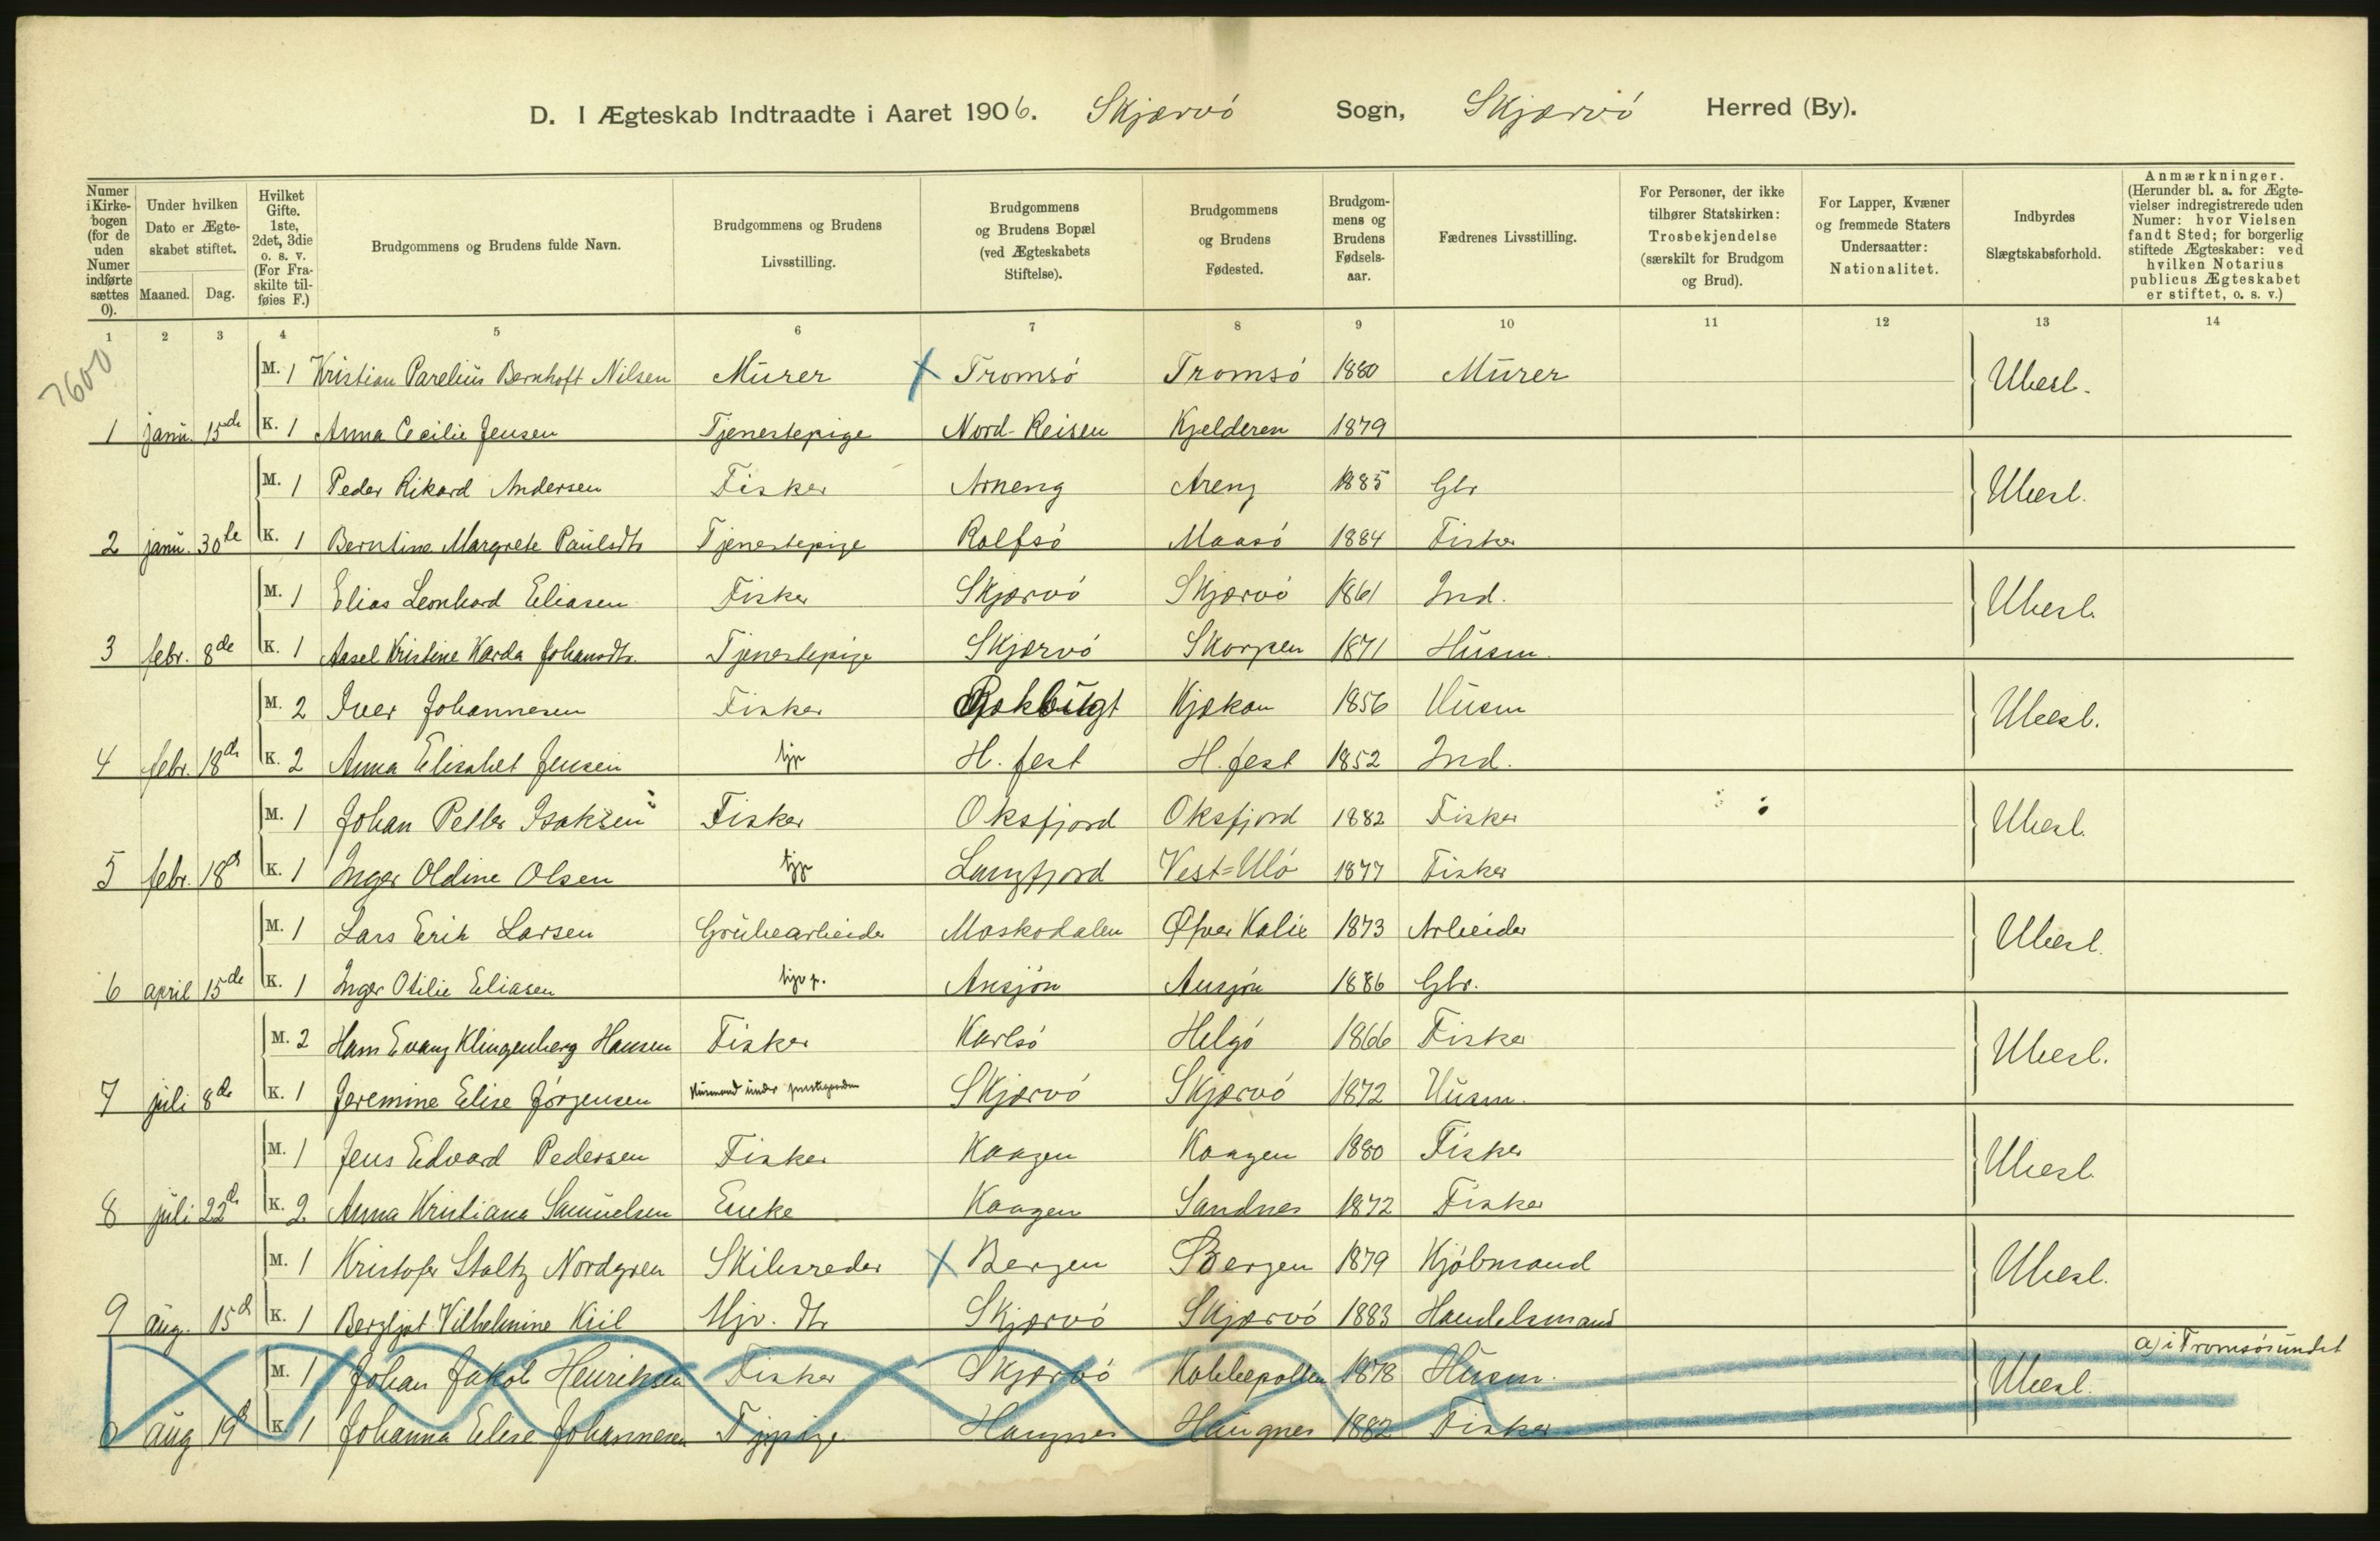 D. I Ægteskab Indtraadte i Aaret 1906. Skjærvö Sogn, Skjærvö Herred (By).
Numer i Kirke-bogen (for de uden Numer indførte sættes 0).
Under hvilken Dato er Ægte-skabet stiftet.
Maaned. Dag.
Hvilket Gifte. 1ste, 2det, 3die o. s. v. (For Fra-skilte til-føies F.)
Brudgommens og Brudens fulde Navn.
Brudgommens og Brudens Livsstilling.
Brudgommens og Brudens Bopæl (ved Ægteskabets Stiftelse).
Brudgommens og Brudens Fødested.
Brudgom-mens og Brudens Fødsels-aar.
Fædrenes Livsstilling.
For Personer, der ikke tilhører Statskirken: Trosbekjendelse (særskilt for Brudgom og Brud).
For Lapper, Kvæner og fremmede Staters Undersaatter: Nationalitet.
Indbyrdes Slægtskabsforhold.
Anmærkninger. (Herunder bl. a. for Ægte-vielser indregistrerede uden Numer: hvor Vielsen fandt Sted; for borgerlig stiftede Ægteskaber: ved hvilken Notarius publicus Ægteskabet er stiftet, o. s. v.)
1 2 3 4 5 6 7 8 9 10 11 12 13 14
7600
M. 1 Kristian Parelius Bernhoft Nilsen Murer X Tromsö Tromsö 1880 Murer Ubesl.
1 janu. 15de K. 1 Anna Cecilie Jensen Tjenestepige Nord-Reisen Kjelderen 1879
M. 1 Peder Rikard Andersen Fisker Arneng Areng 1885 Gbr Ubesl.
2 janu. 30te K. 1 Berntine Margrete Paulsdtr Tjenestepige Rolfsö Maasö 1884 Fisker
M. 1 Elias Leonhard Eliasen Fisker Skjærvö Skjærvö 1861 Ind. Ubesl.
3 febr. 8de K. 1 Aasel Kristine Karda Johansdtr. Tjenestepige Skjærvö Skorpen 1871 Husm.
M. 2 Iver Johannesen Fisker Kjækan 1856 Husm Ubesl.
4 febr. 18de K. 2 Anna Elisabet Jensen tjp H. fest H. fest 1852 Ind.
M. 1 Johan Petter Isaksen Fisker Oksfjord Oksfjord 1882 Fisker Ubesl.
5 febr. 18d K. 1 Inger Oldine Olsen tjp Langfjord Vest=Ulö 1877 Fisker
M. 1 Lars Erik Larsen Grubearbeider Moskodalen Øfver Kalix 1873 Arbeider Ubesl.
6 april 15de K. 1 Inger Otilie Eliasen Ansjön Ausjön 1886 Gbr.
M. 2 Hans Evang Klingenberg Hansen Fisker Karlsö Helgö 1866 Fisker Ubesl.
7 juli 8de K. 1 Jeremine Elise Jörgensen Husmand under Skjærvö Skjærvö 1872 Husm.
M. 1 Jens Edvard Pedersen Fisker Kaagen Kaagen 1880 Fisker Ubesl.
8 juli 22d K. 2. Anna Kristiana Samuelsen Enke Kaagen Sandnes 1872 Fisker
M. 1 Kristofer Stoltz Nordgren Skibsreder X Bergen Bergen 1879 Kjöbmand Ubesl.
9 aug. 15d K. 1 Bergljot Vilhelmine Kiil Hjv. Dtr Skjærvö Skjærvö 1883 Handelsmand
M. 1 Johan Jakob Henriksen Fisker Skjærvö Kobbepollen 1878 Husm. Ubesl. a) i Tromsösundet
0 aug 19d K 1 Johanna Elise Johannesen Tjpige Haugnes Haugnes 1882 Fisker